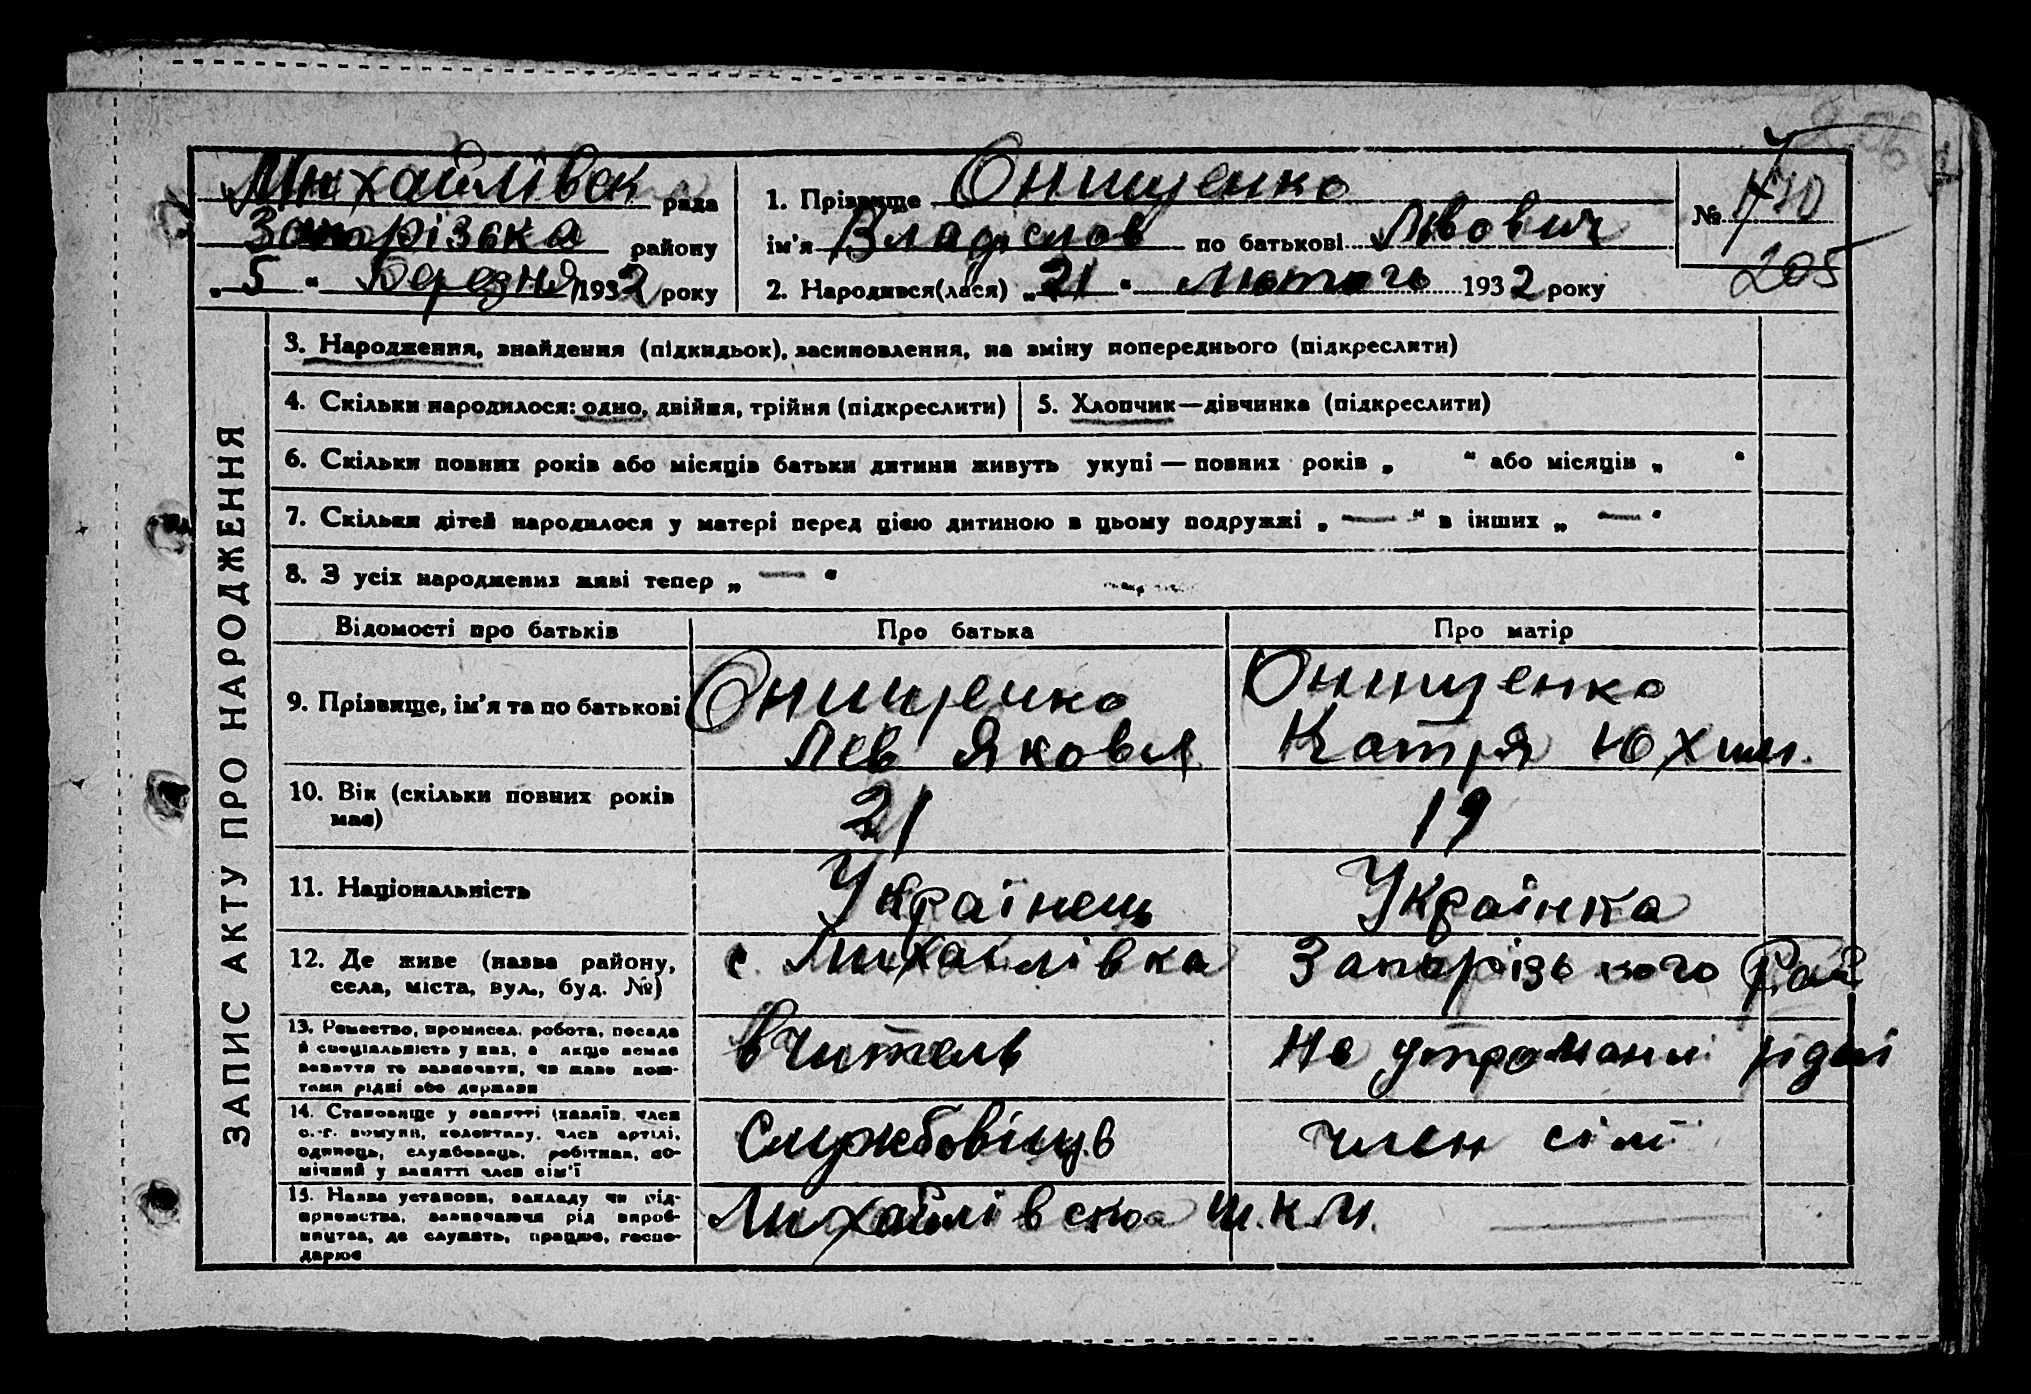 Михайлівськ рада
Запорізька району
„ 5 “ Березня 1932 року
1. Прізвище Онищенко
ім'я Владіслав по батькові Львович
2. Народився(лася) „ 21 “ Лютого 1932 року
№
205
ЗАПИС АКТУ ПРО НАРОДЖЕННЯ
3. Народження, знайдення (підкидьок), засиновлення, на зміну попереднього (підкреслити)
4. Скільки народилося: одно, двійня, трійня (підкреслити)
5. Хлопчик—дівчинка (підкреслити)
6. Скільки повних років або місяців батьки дитини живуть укупі — повних років „ “ або місяців „ “
7. Скільки дітей народилося у матері перед цією дитиною в цьому подружжі „ — “ в інших „ — “
8. З усіх народжених живі тепер „ — “
Відомості про батьків
Про батька
Про матір
9. Прізвище, ім'я та по батькові
Онищенко
Лев Яковл
Онищенко
Катря Юхим.
10. Вік (скільки повних років
має)
21
19
11. Національність
Українець
Українка
12. Де живе (назва району,
села, міста, вул., буд. №)
с. Михайлівка
Запорізького Рай
13. Ремество, промисел, робота, посада
й спеціяльність у них, а якщо немає
заняття то зазначити, чи живе кош-
тами рідні або держави
Вчитель
На утриманні рідні
14. Становище у занятті (хазяїн, член
с.-г. комуни, колективу, член артілі,
одинець, службовець, робітник, по-
мічний у занятті член сім'ї
Службовець
член сімї
15. Назва установи, закладу чи під-
приємства, зазначаючи рід вироб-
ництва, де служить, працює, госпо-
дарює
Михайлівська Ш.К.М.